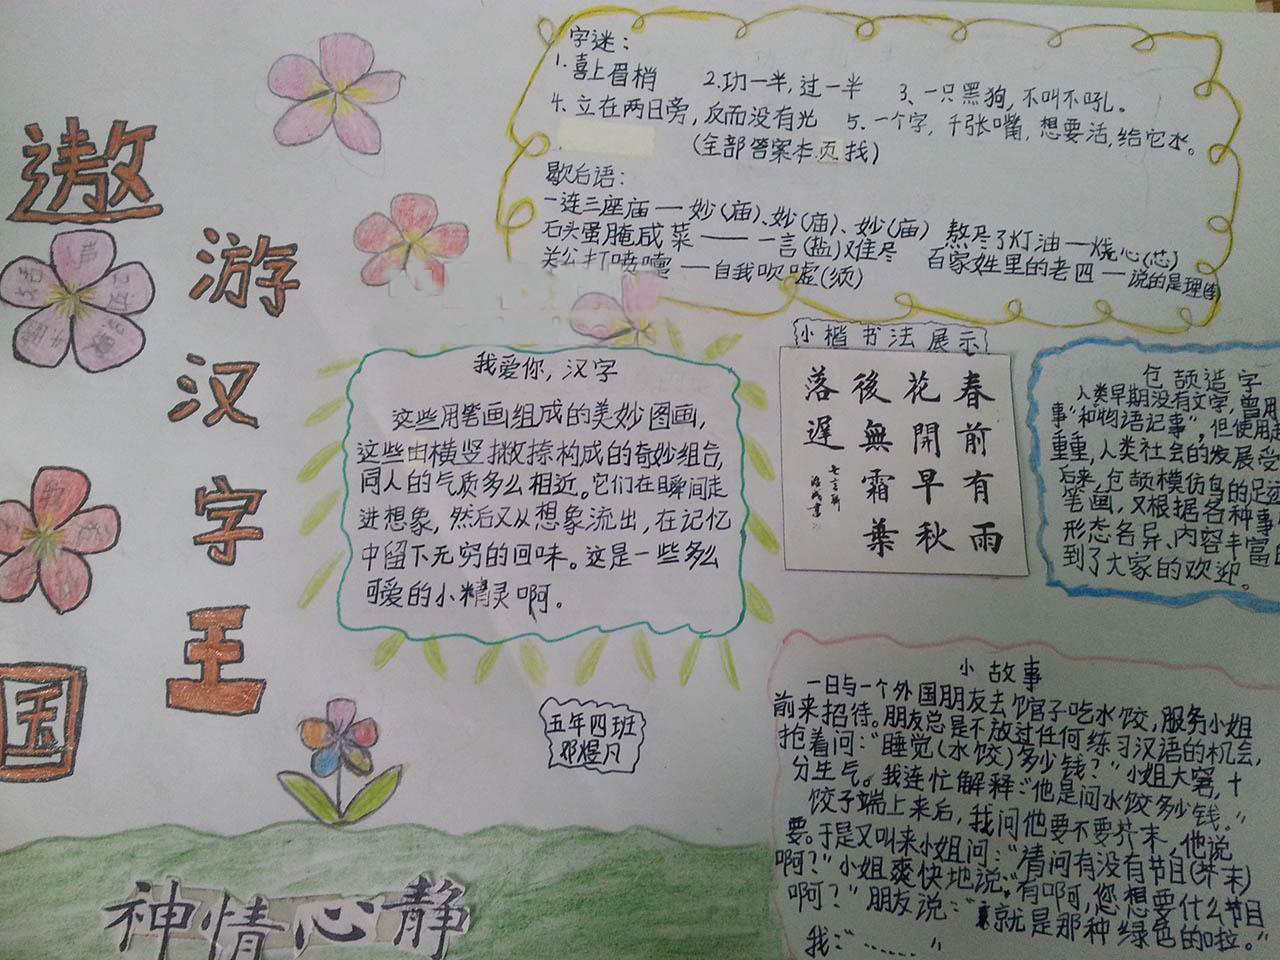 遨
游
汉
字
王
国
字迷：
1.喜上眉梢 2.功一半,过一半 3、一只黑狗,不叫不吼。
4.立在两日旁,反而没有光 5.一个字,千张嘴,想要活,给它水。
(全部答案本页找)
歇后语：
一连三座庙—妙(庙)、妙(庙)、妙(庙) 熬尽了灯油—烧心(芯)
石头蛋腌咸菜——一言(盐)难尽 百家姓里的老四—说的是理(李)
关公打喷嚏—自我吹嘘(须)
我爱你,汉字
这些用笔画组成的美妙图画,
这些由横竖撇捺构成的奇妙组合,
同人的气质多么相近。它们在瞬间走
进想象,然后又从想象流出,在记忆
中留下无穷的回味。这是一些多么
可爱的小精灵啊。
小楷书法展示
春前有雨
花開早秋
後無霜葉
落遲
仓颉造字
人类早期没有文字,曾用
事"和物语记事",但使用起
重重,人类社会的发展受
后来,仓颉模仿鸟的足迹
笔画,又根据各种事
形态各异、内容丰富的
到了大家的欢迎。
五年四班
邓煜凡
小故事
一日与一个外国朋友去饭馆子吃水饺,服务小姐
前来招待。朋友总是不放过任何练习汉语的机会,
抢着问："睡觉(水饺)多少钱？"小姐大窘,十
分生气。我连忙解释："他是问水饺多少钱。"
饺子端上来后,我问他要不要芥末,他说
要。于是又叫来小姐问："请问有没有节目(芥末)
啊？"小姐爽快地说："有啊,您想要什么节目
啊？"朋友说："就是那种绿色的啦。"
我："……"
神情心静